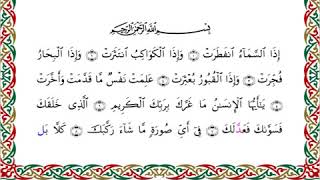 بِسْمِ ٱللَّهِ ٱلرَّحْمَٰنِ ٱلرَّحِيمِ
إِذَا ٱلسَّمَآءُ ٱنفَطَرَتْ ۝ وَإِذَا ٱلْكَوَاكِبُ ٱنتَثَرَتْ ۝ وَإِذَا ٱلْبِحَارُ
فُجِّرَتْ ۝ وَإِذَا ٱلْقُبُورُ بُعْثِرَتْ ۝ عَلِمَتْ نَفْسٌ مَّا قَدَّمَتْ وَأَخَّرَتْ
۝ يَٰٓأَيُّهَا ٱلْإِنسَٰنُ مَا غَرَّكَ بِرَبِّكَ ٱلْكَرِيمِ ۝ ٱلَّذِى خَلَقَكَ
فَسَوَّىٰكَ فَعَدَلَكَ ۝ فِىٓ أَىِّ صُورَةٍ مَّا شَآءَ رَكَّبَكَ ۝ كَلَّا بَلْ